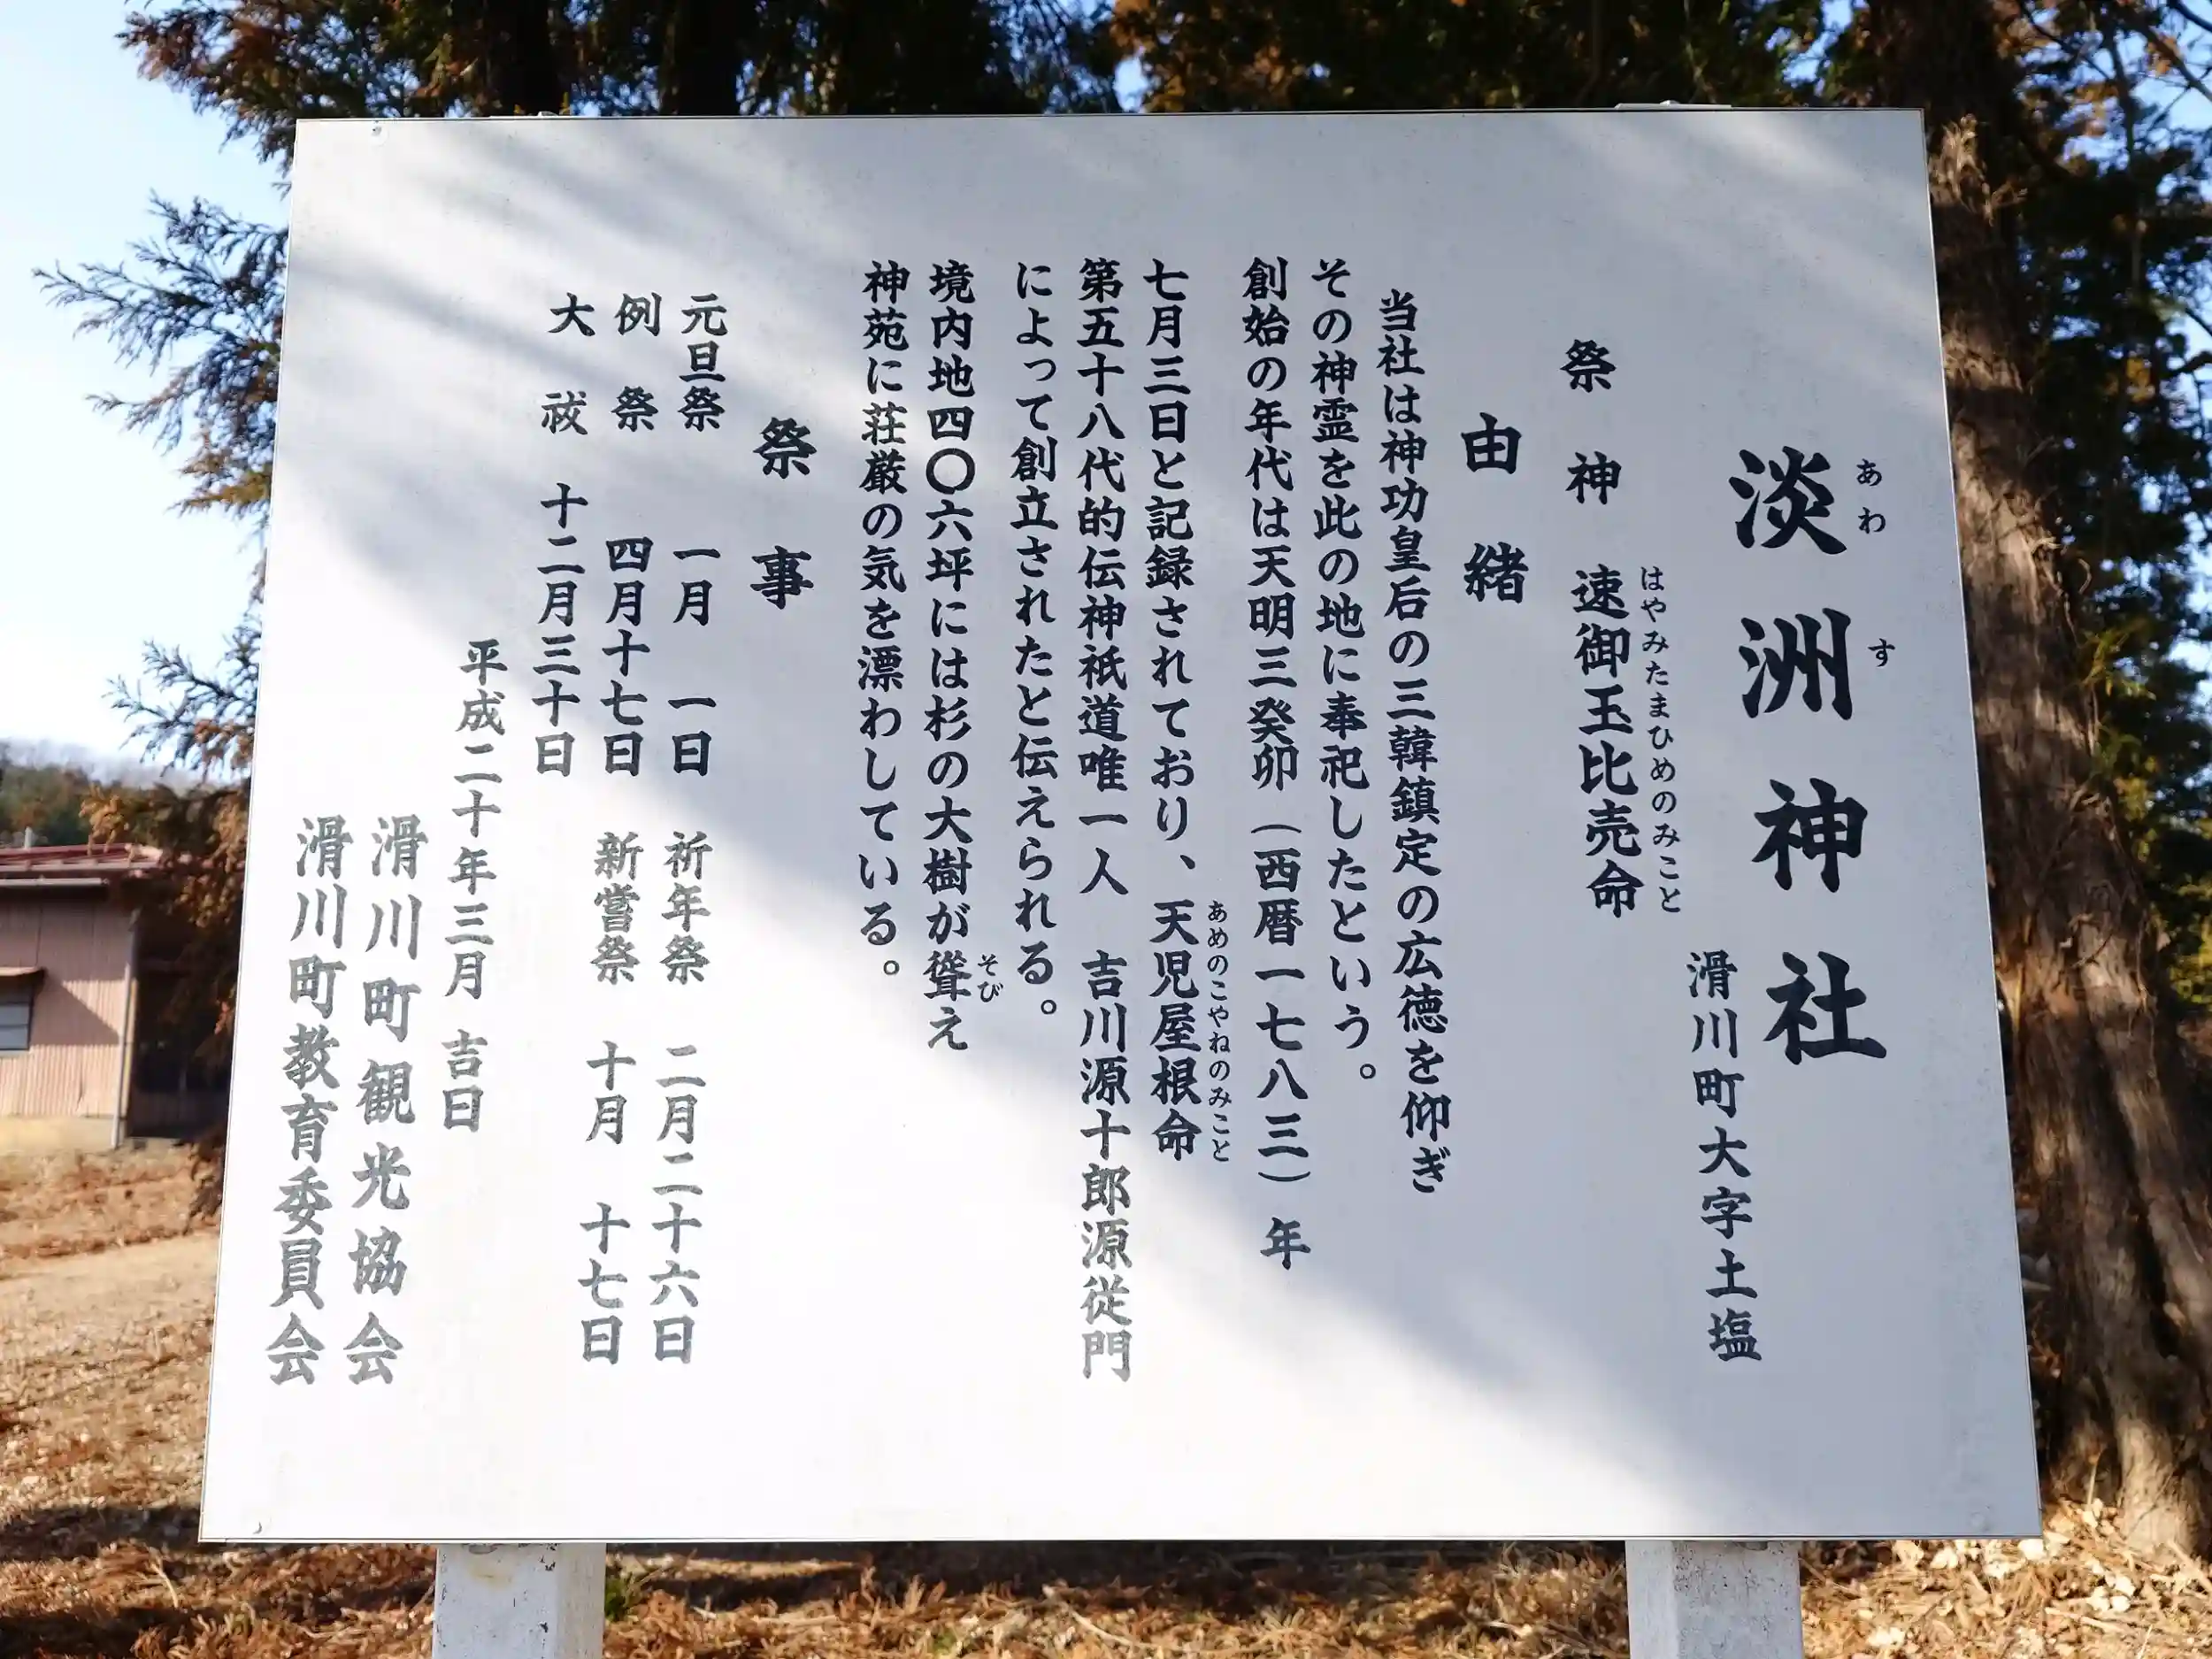 淡洲神社
あわす
滑川町大字土塩
祭神　速御玉比売命
はやみたまひめのみこと
由緒
当社は神功皇后の三韓鎮定の広徳を仰ぎ
その神霊を此の地に奉祀したという。
創始の年代は天明三癸卯（西暦一七八三）年
七月三日と記録されており、天児屋根命
あめのこやねのみこと
第五十八代的伝神祇道唯一人　吉川源十郎源従門
によって創立されたと伝えられる。
境内地四〇六坪には杉の大樹が聳え
そび
神苑に荘厳の気を漂わしている。
祭事
元旦祭　一月　一日　祈年祭　二月二十六日
例祭　四月十七日　新嘗祭　十月　十七日
大祓　十二月三十日
平成二十年三月　吉日
滑川町観光協会
滑川町教育委員会